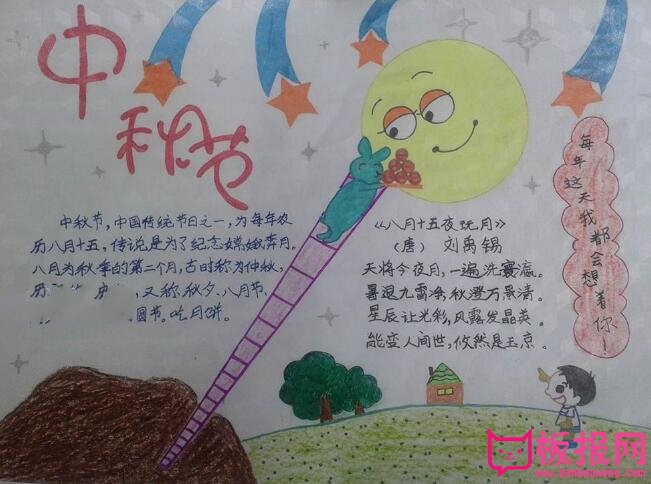 中秋节
中秋节,中国传统节日之一,为每年农
历八月十五,传说是为了纪念嫦娥奔月。
八月为秋季的第二个月,古时称为仲秋,
又称秋夕、八月节、
圆节。吃月饼。
《八月十五夜玩月》
(唐) 刘禹锡
天将今夜月,一遍洗寰瀛。
暑退九霄净,秋澄万景清。
星辰让光彩,风露发晶英。
能变人间世,攸然是玉京。
每年这天我都会想着你!
板报网